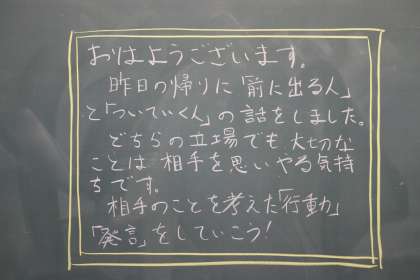 おはようございます。
昨日の帰りに「前に出る人」
と「ついていくん」の話をしました。
どちらの立場でも 大切な
ことは 相手を思いやる気持
ちです。
相手のことを考えた「行動」
「発言」をしていこう!